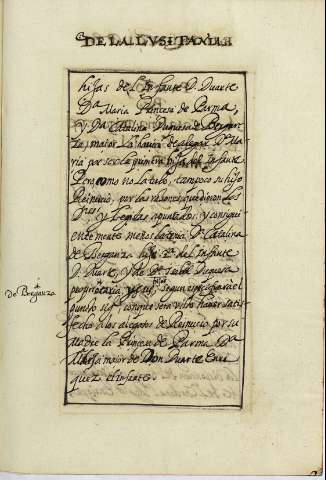 DE LA LVSITANIA
hijas del Infante D. Duarte
Da Maria Princesa de Parma,
y Da Catalina Duquesa de Bergan
za, maior la havia de alegar Da Ma
ria por ser la primera hija del Infante
Pero, como no la tubo, tampoco su hijo
Reinucio, por las razones, que dieron los
Dres. y Legistas apuntado, y consigui
entemente menos la tenia Da Catalina
de Berganza hija 2a del Infante
D. Duarte, y de Da Isabel Duquesa
propietaria, y que, segun
punto sig. con que sera visto haver satis
fecho a los alegatos de Reinucio por su
Madre la Princesa de Parma Da
Maria maior de Don Duarte Enri
quez el infante.
de Berganza